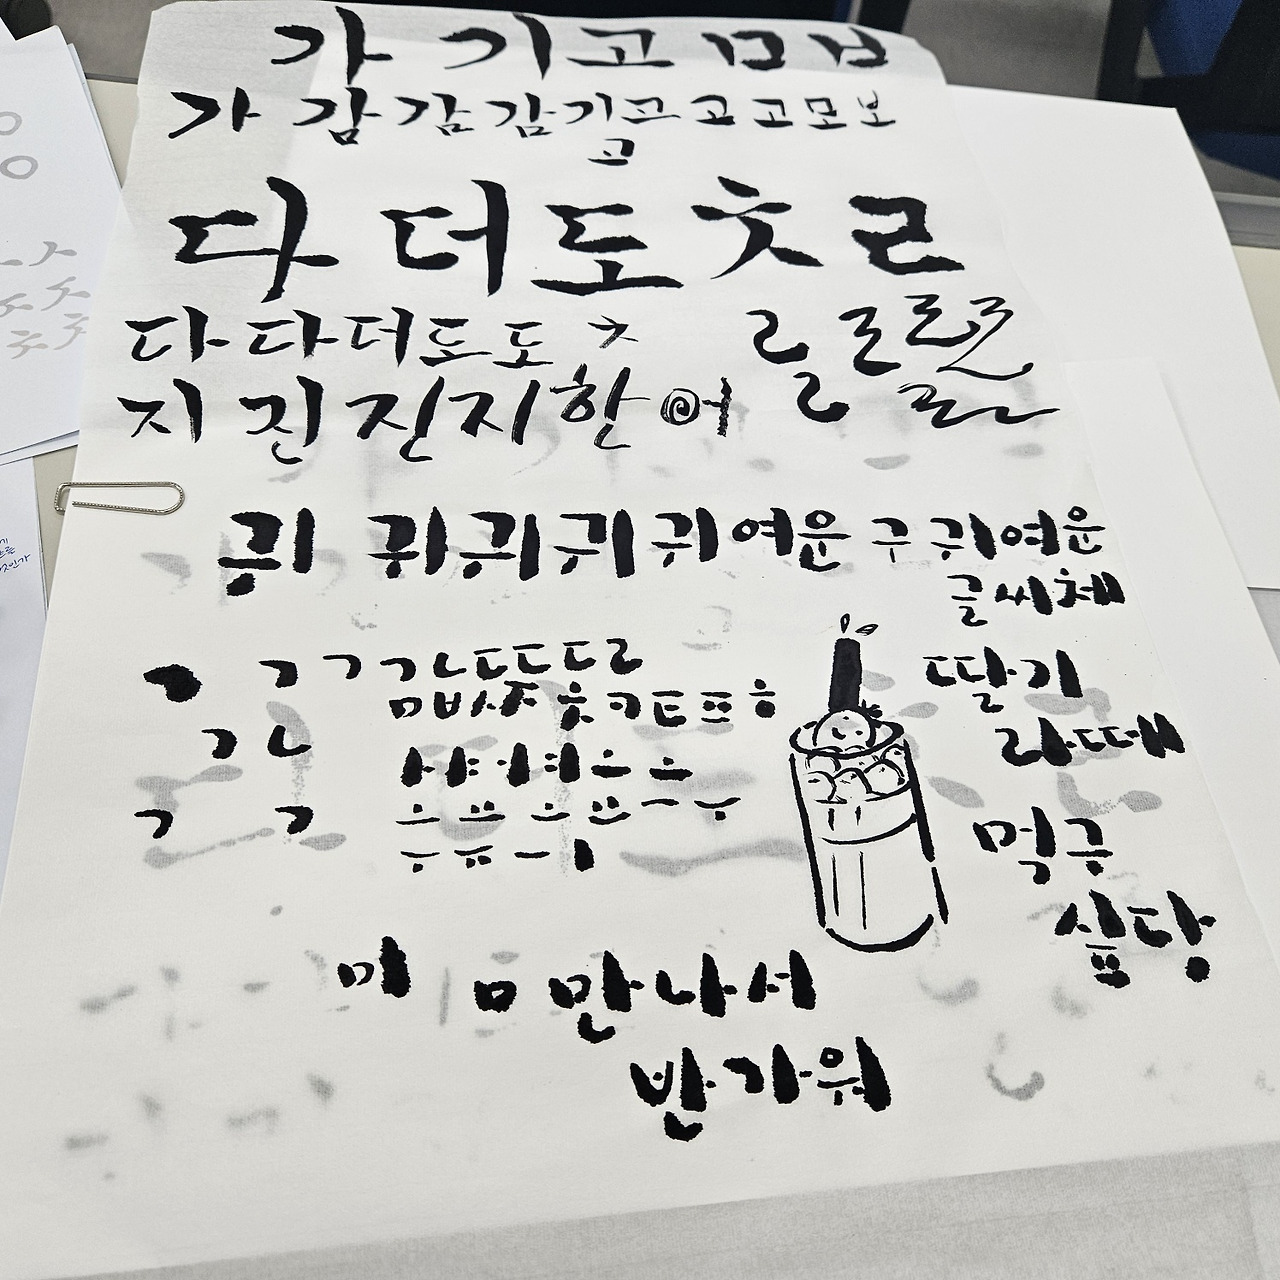 가 기 고 ㅁ ㅁ ㅂ
가 감 감 감 기 고 고 고 모 보
고
다 더 도 ㅊ ㄹ
다 다 더 도 도 ㅊ
ㄹ ㄹ ㄹ ㄹ ㄹ
지 진 진 지 한 어
귀 귀 귀 귀 귀 여운 구 귀여운
글씨체
ㄱ ㄱ ㄱ ㄴ ㄷ ㄷ ㄷ ㄹ
ㅁ ㅂ ㅅ ㅈ ㅊ ㅋ ㅌ ㅍ ㅎ
ㄱ ㄴ
ㅏ ㅑ ㅓ ㅕ ㅗ ㅗ
ㄱ ㄱ
딸기
라떼
먹구
싶당
미 ㅁ 만나서
반가워